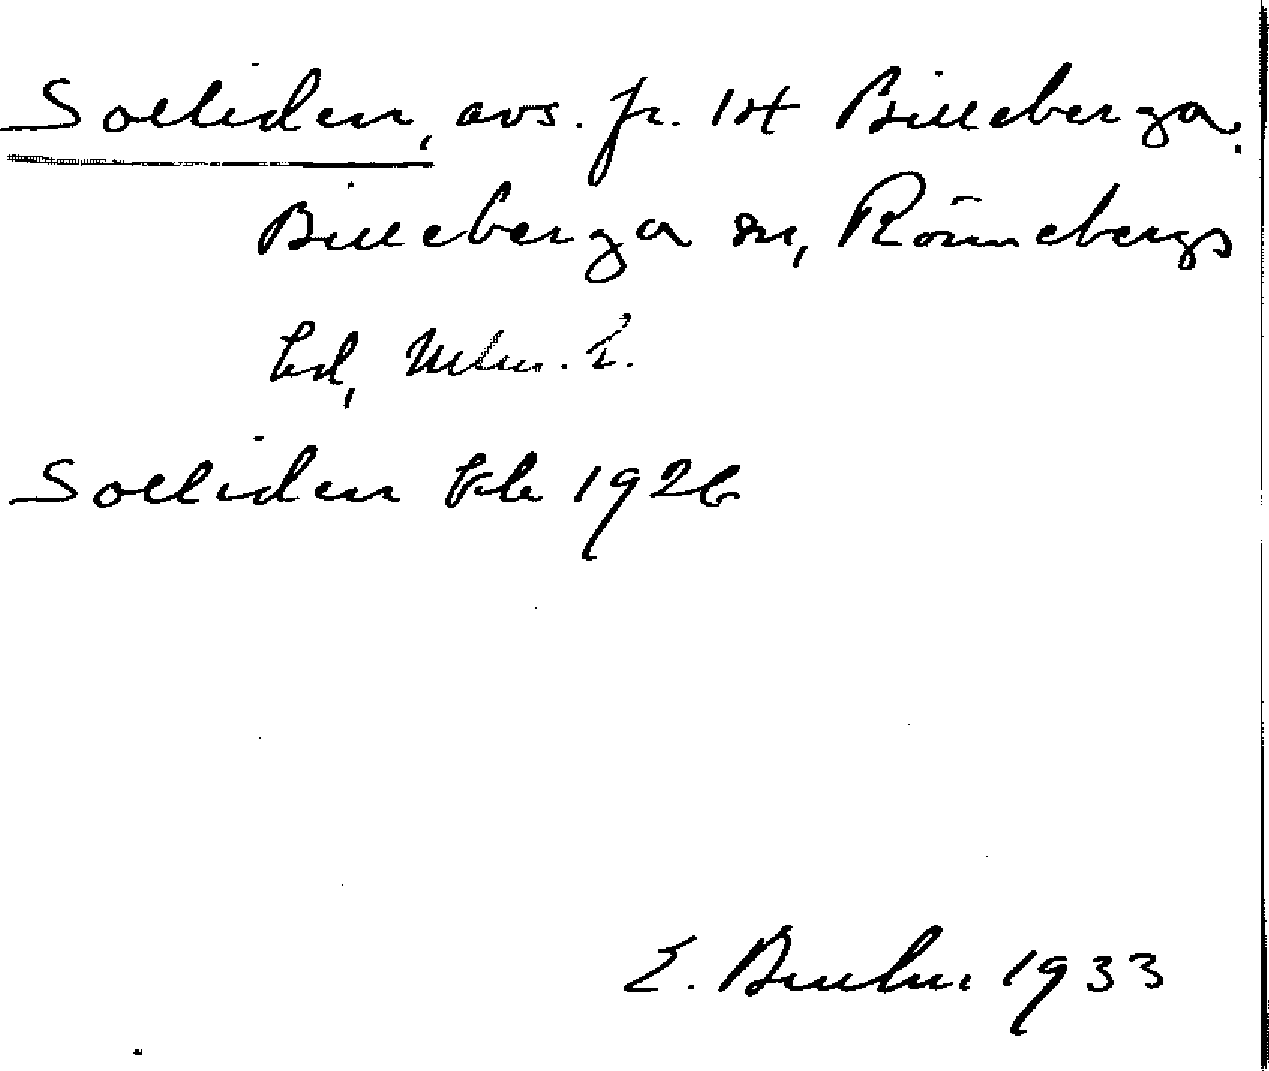 Solliden, avs. fr. 14 Billeberga,
Billeberga sn, Rönnebergs
hd, Mlm. l.
Solliden Jb 1926
E. 1933